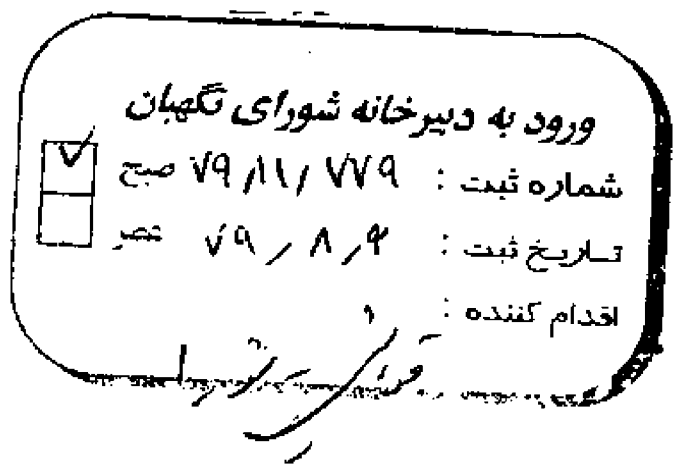 ورود به دبیرخانه شورای نگهبان
شماره ثبت : ۷۹/۱۱/۷۷۹ صبح
تاریخ ثبت : ۷۹/۸/۲ عصر
اقدام کننده :